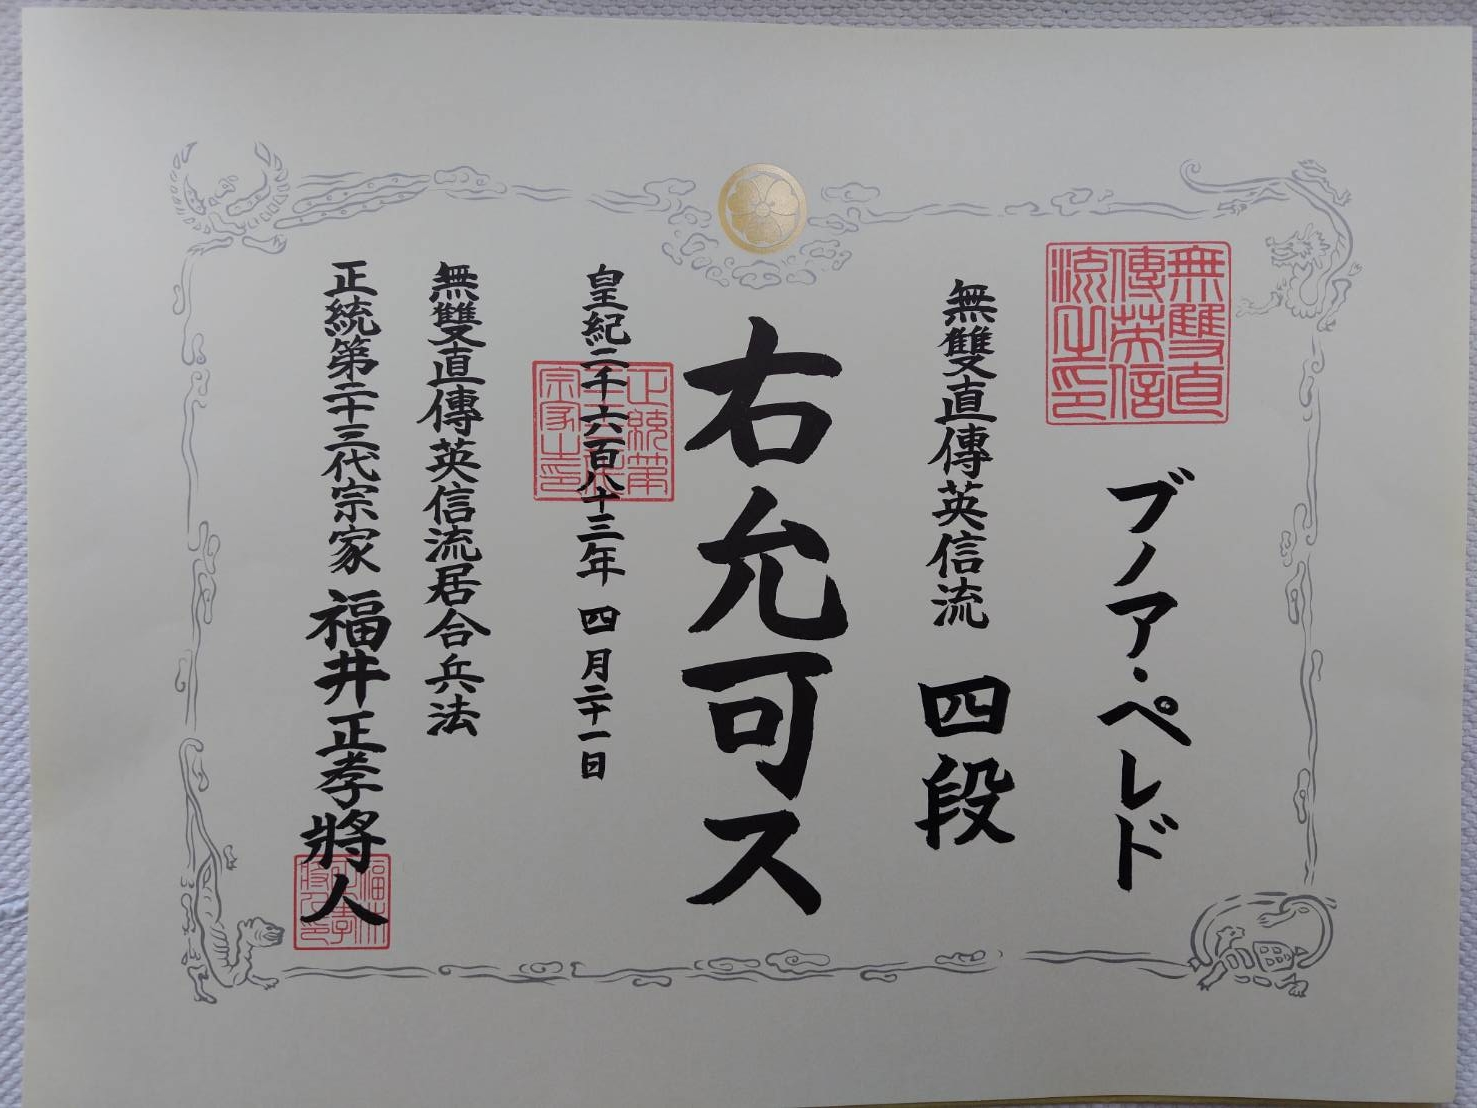 無雙直
傳英信
流之印
ブノア・ペレド
無雙直傳英信流 四段
右允可ス
皇紀二千六百八十三年 四月二十一日
無雙直傳英信流居合兵法
正統第二十三代宗家 福井正孝將人